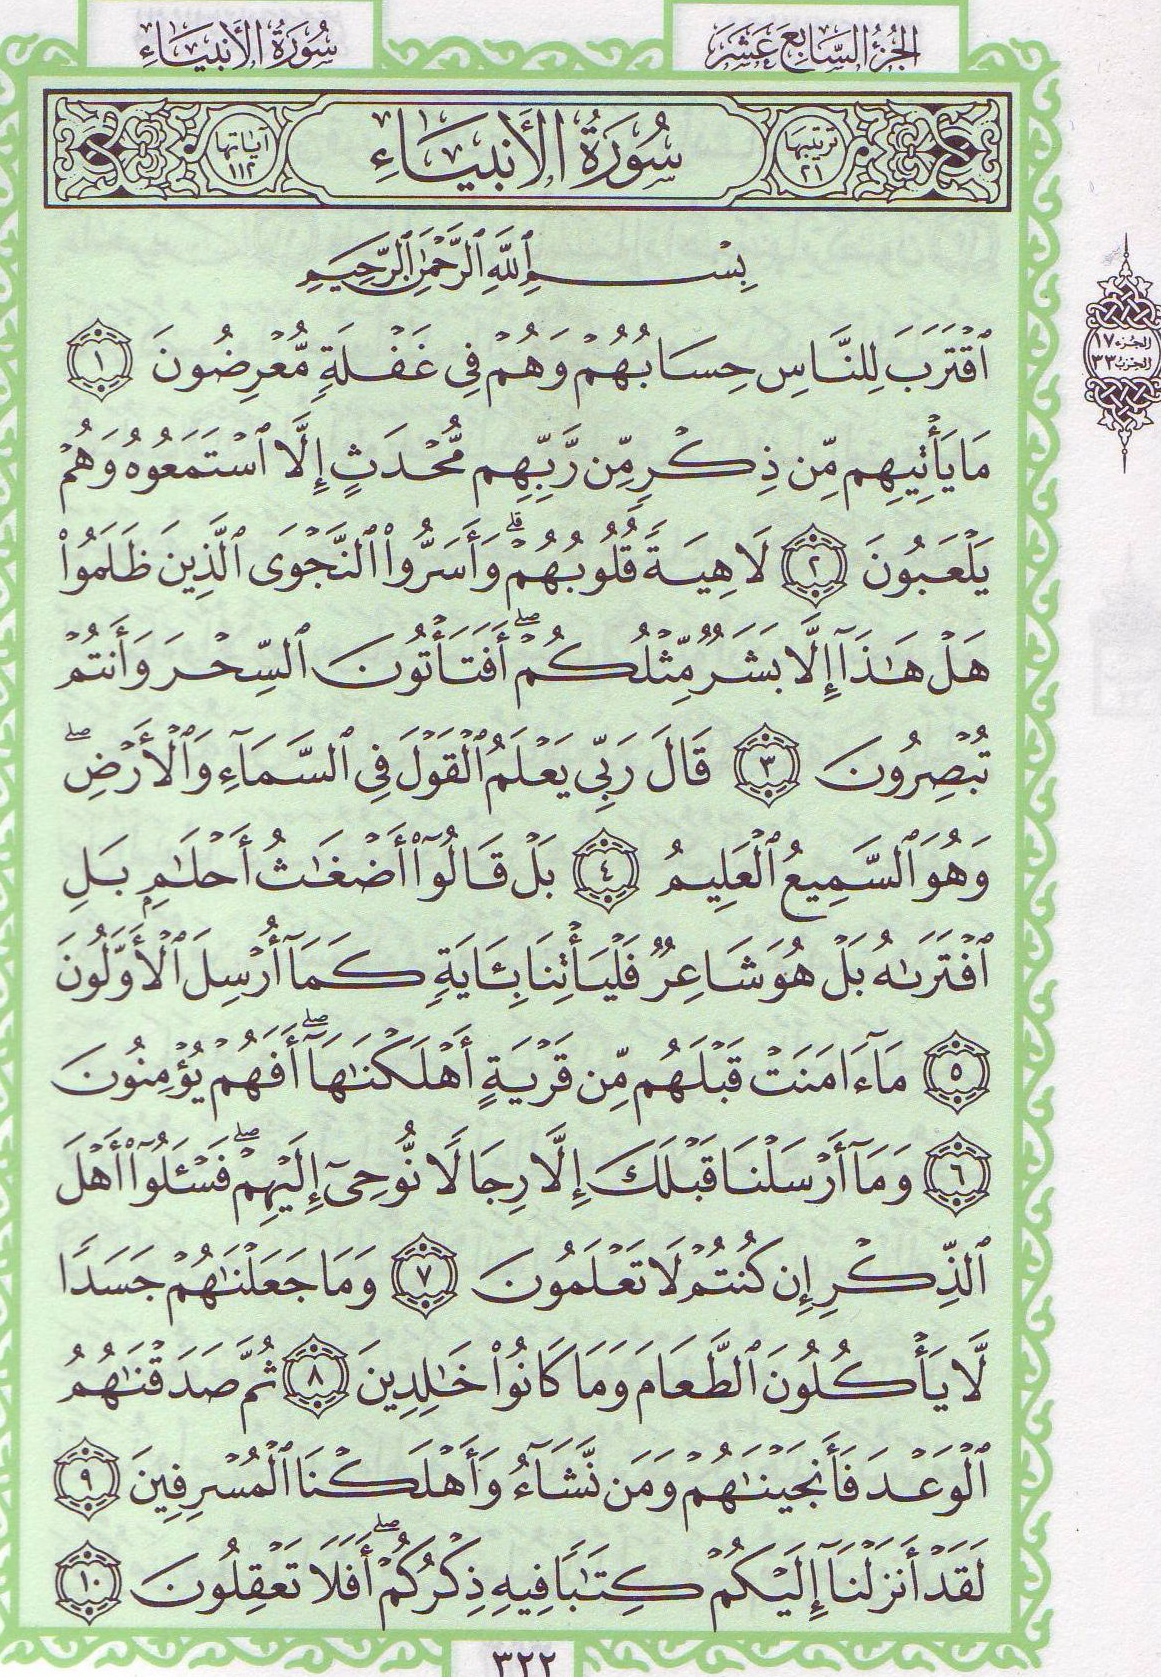 الجُزْءُ السَّابِعَ عَشَرَ
سُورَةُ الأَنبِيَاءِ
تَرتِيبُهَا ٢١
سُورَةُ الأَنبِيَاءِ
آيَاتُهَا ١١٢
بِسْمِ ٱللَّهِ ٱلرَّحْمَٰنِ ٱلرَّحِيمِ
ٱقْتَرَبَ لِلنَّاسِ حِسَابُهُمْ وَهُمْ فِى غَفْلَةٍ مُّعْرِضُونَ ١
مَا يَأْتِيهِم مِّن ذِكْرٍ مِّن رَّبِّهِم مُّحْدَثٍ إِلَّا ٱسْتَمَعُوهُ وَهُمْ
يَلْعَبُونَ ٢ لَاهِيَةً قُلُوبُهُمْ ۗ وَأَسَرُّوا۟ ٱلنَّجْوَى ٱلَّذِينَ ظَلَمُوا۟
هَلْ هَٰذَآ إِلَّا بَشَرٌ مِّثْلُكُمْ ۖ أَفَتَأْتُونَ ٱلسِّحْرَ وَأَنتُمْ
تُبْصِرُونَ ٣ قَالَ رَبِّى يَعْلَمُ ٱلْقَوْلَ فِى ٱلسَّمَآءِ وَٱلْأَرْضِ ۖ
وَهُوَ ٱلسَّمِيعُ ٱلْعَلِيمُ ٤ بَلْ قَالُوٓا۟ أَضْغَٰثُ أَحْلَٰمٍۭ بَلِ
ٱفْتَرَىٰهُ بَلْ هُوَ شَاعِرٌ فَلْيَأْتِنَا بِـَٔايَةٍ كَمَآ أُرْسِلَ ٱلْأَوَّلُونَ
٥ مَآ ءَامَنَتْ قَبْلَهُم مِّن قَرْيَةٍ أَهْلَكْنَٰهَآ ۖ أَفَهُمْ يُؤْمِنُونَ
٦ وَمَآ أَرْسَلْنَا قَبْلَكَ إِلَّا رِجَالًا نُّوحِىٓ إِلَيْهِمْ ۖ فَسْـَٔلُوٓا۟ أَهْلَ
ٱلذِّكْرِ إِن كُنتُمْ لَا تَعْلَمُونَ ٧ وَمَا جَعَلْنَٰهُمْ جَسَدًا
لَّا يَأْكُلُونَ ٱلطَّعَامَ وَمَا كَانُوا۟ خَٰلِدِينَ ٨ ثُمَّ صَدَقْنَٰهُمُ
ٱلْوَعْدَ فَأَنجَيْنَٰهُمْ وَمَن نَّشَآءُ وَأَهْلَكْنَا ٱلْمُسْرِفِينَ ٩
لَقَدْ أَنزَلْنَآ إِلَيْكُمْ كِتَٰبًا فِيهِ ذِكْرُكُمْ ۖ أَفَلَا تَعْقِلُونَ ١٠
الجزء ١٧
الحزب ٣٣
٣٢٢